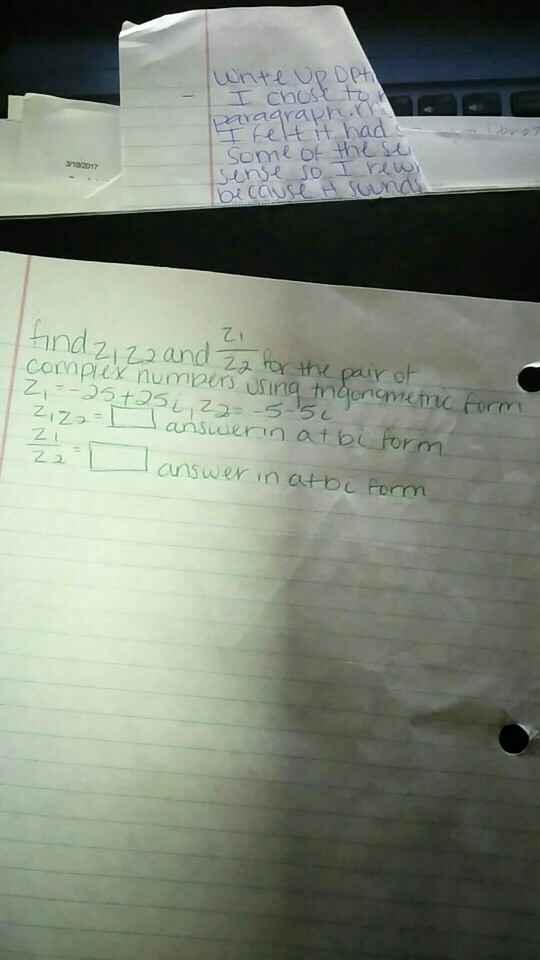 Write Up Opti
- I chose to
paragraph.
I felt it had
Some of the se
sense so I rew
because it sounds
3/18/2017
find z1z2 and z1/z2 for the pair of
complex numbers using trigonometric form
z1=-25+25i, z2=-5-5i
z1z2=□ answer in a+bi form
z1/z2=□ answer in a+bi form